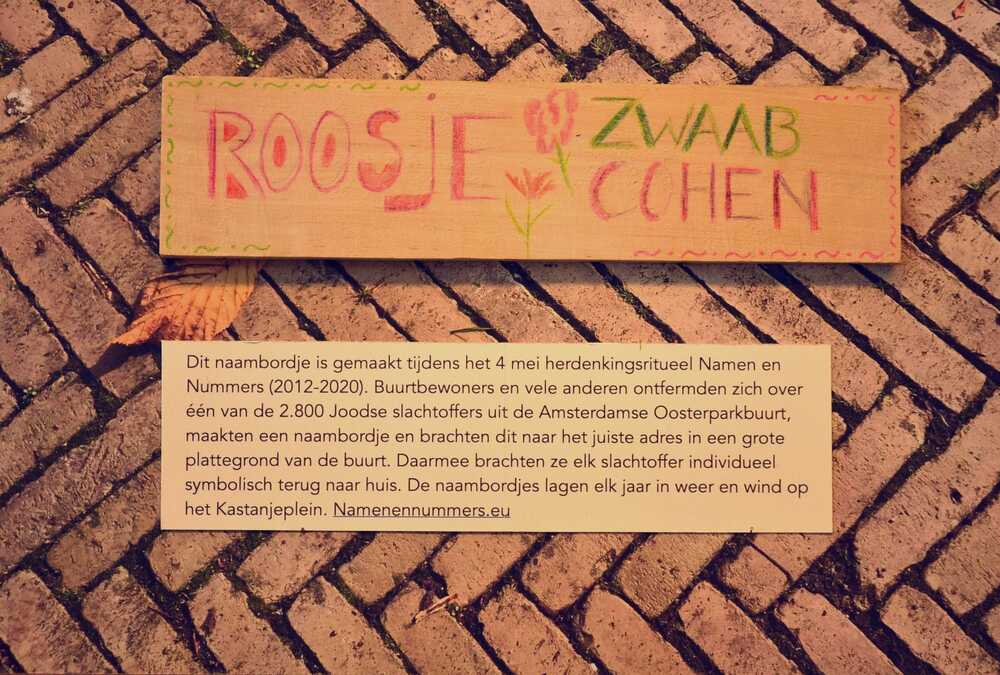 ROOSJE ZWAAB
COHEN
Dit naambordje is gemaakt tijdens het 4 mei herdenkingsritueel Namen en
Nummers (2012-2020). Buurtbewoners en vele anderen ontfermden zich over
één van de 2.800 Joodse slachtoffers uit de Amsterdamse Oosterparkbuurt,
maakten een naambordje en brachten dit naar het juiste adres in een grote
plattegrond van de buurt. Daarmee brachten ze elk slachtoffer individueel
symbolisch terug naar huis. De naambordjes lagen elk jaar in weer en wind op
het Kastanjeplein. Namenennummers.eu